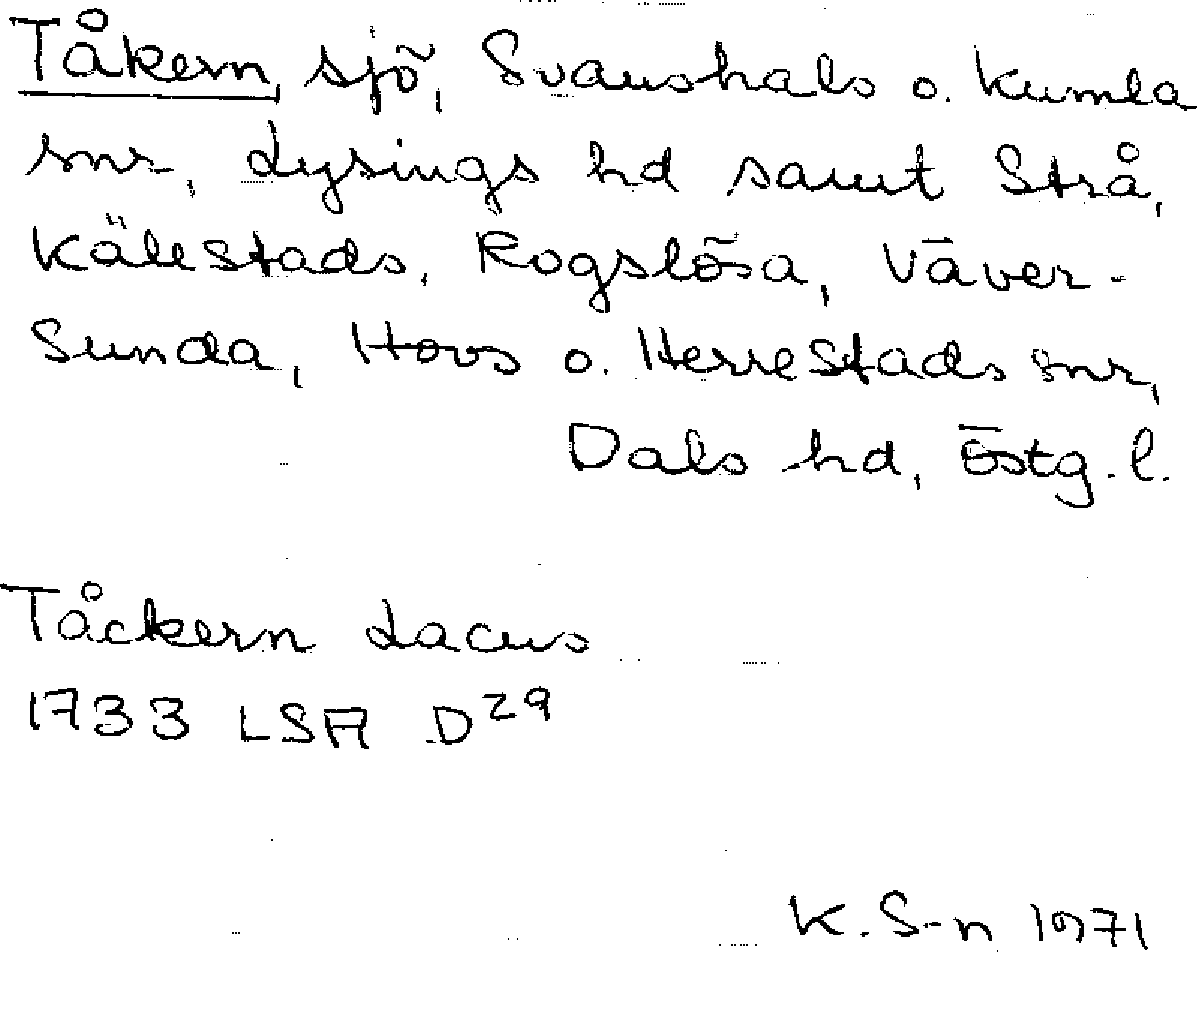 Tåkern, sjö, Svanshals o. Kumla
snr, Lysings hd samt Strå,
Källstads, Rogslösa, Väver-
sunda, Hovs o. Herrestads snr,
Dals hd, Östg. l.
Tåckern Lacus
1733 LSA D29
K. S-n 1971